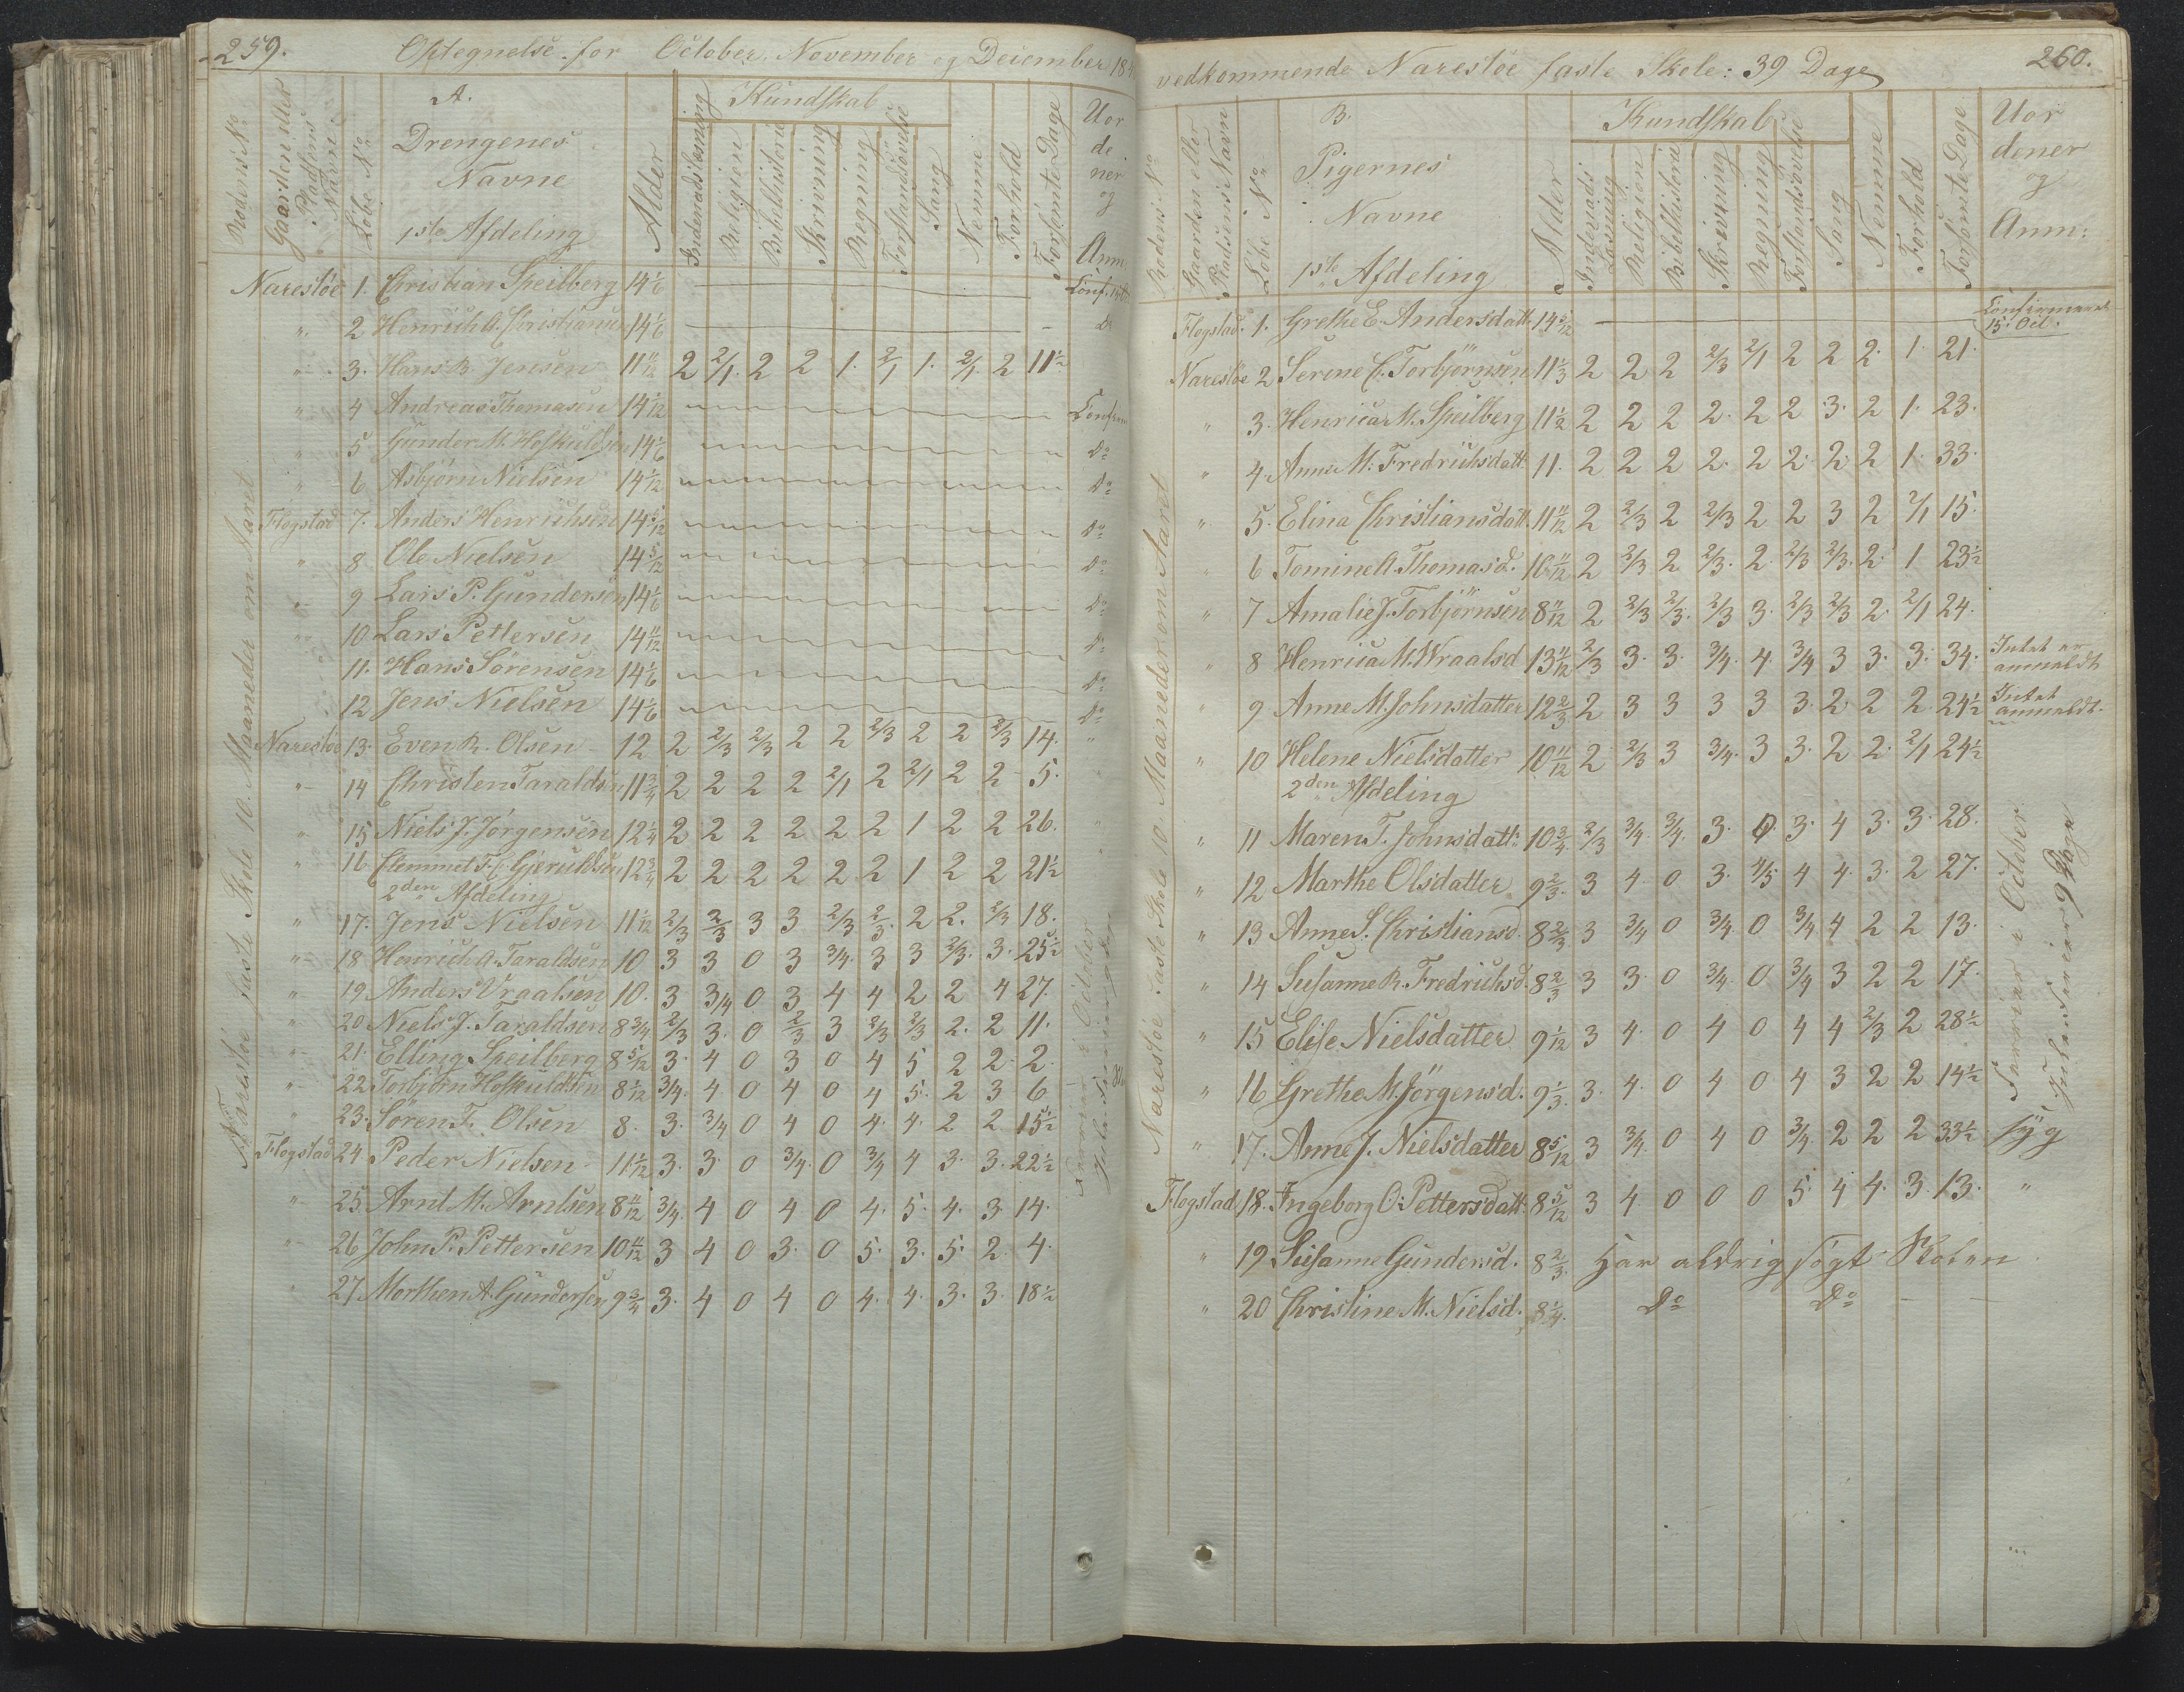 259.
Optegnelse for October, November og December 18
Rodens No
Gaarden eller Pladsens Navn
Löbe No
A.
Drengenes
Navne
1ste Afdeling
Alder
Kundskab
Indenadslæsning
Religion
Bibelhistorie
Skrivning
Regning
Forstandsövelse
Sang
Nemme
Forhold
Forsömte Dage
Uordener og Anm.
Narestöe faste Skole 10. Maaneder om Aaret
Narestöe 1. Christian Speilberg 14 1/6 Conf.
" 2 Henrich A. Christiansen 14 1/6 Do
" 3. Hans R. Jensen 11 11/12 2 2/1. 2 2 1. 2/1 1. 2/1 2 11 1/2
" 4 Andreas Thomasen 14 1/12 Confirm
" 5 Gunder M. Hofkuldsen 14 1/6 Do
" 6 Asbjörn Nielsen 14 1/12 Do
Flogstad 7. Anders Henrichsen 14 5/12 Do
" 8 Ole Nielsen 14 5/12 Do
" 9 Lars P. Gundersen 14 1/6 Do
" 10 Lars Pettersen 14 11/12 Do
11. Hans Sörensen 14 1/6 Do
12 Jens Nielsen 14 1/6 Do
Narestöe 13. Even R. Olsen 12 2 2/3 2/3 2 2 2/3 2 2 2/3 14. "
" 14 Christen Taraldsen 11 3/4 2 2 2 2 2/1 2 2/1 2 2 5.
" 15 Niels J. Jörgensen 12 1/4 2 2 2 2 2 2 1 2 2 26.
" 16 Clemmet F. C. Gjeruldsen 12 3/4 2 2 2 2 2 2 1 2 2 21 1/2
2den Afdeling
" 17. Jens Nielsen 11 1/12 2/3 2/3 3 3 2/3 2/3. 2 2. 2/3 18.
" 18 Henrich A. Taraldsen 10 3 3 0 3 3/4. 3 3 2/3. 3. 25 1/2
" 19 Anders Vraalsen 10. 3 3/4 0 3 4 4 2 2 4 27.
" 20 Niels J. Taraldsen 8 3/4 2/3 3. 0 2/3 3 2/3 2/3 2. 2 11.
" 21. Elling Speilberg 8 5/12 3. 4 0 3 0 4 5 2 2. 2.
" 22 Torbjörn Hofkuldsen 8 1/12 3/4. 4 0 4 0 4 5. 2 3 6
" 23. Sören T. Olsen 8. 3. 3/4 0 4 0 4. 4. 2 2 15 1/2
Flogstad 24 Peder Nielsen 11 1/12 3. 3. 0 3/4. 0 3/4 4 3. 3. 22 1/2
" 25. Arnt M. Arntsen 8 11/12 3/4. 4 0 4 0 4. 5. 4. 3. 14.
" 26 John P. Pettersen 10 11/12 3 4 0 3. 0 5. 3. 5. 2. 4.
" 27 Morthen A. Gundersen 9 3/4 3. 4 0 4 0 4. 4. 3. 3. 18 1/2
Ferrier i October
260.
vedkommende Narestöe faste Skole: 39 Dage
Rodens No
Gaarden eller Pladsens Navn
Löbe No
B.
Pigernes
Navne
1ste Afdeling
Alder
Kundskab
Indenads Læsning
Religion
Bibelhistorie
Skrivning
Regning
Forstandsövelse
Sang
Nemme
Forhold
Forsömte Dage
Uordener og Anm:
Narestöe faste Skole 10. Maaneder om Aaret
Flogstad. 1. Grethe E. Andersdatt. 14 5/12 Confirmeret 15. Oct.
Narestöe 2 Serine C. Torbjörnsen 11 1/3 2 2 2 2/3 2/1 2 2 2. 1. 21.
" 3. Henrica M. Speilberg 11 1/2 2 2 2 2. 2 2. 3. 2 1. 23.
" 4. Anna M. Fredrichsdatt: 11. 2 2 2 2. 2 2. 2. 2 1. 33.
" 5. Elina Christiansdatt. 11 11/12 2 2/3 2 2/3 2 2 3 2 2/1 15.
" 6 Tomine A. Thomasd. 10 11/12 2 2/3 2 2/3. 2. 2/3 2/3. 2. 1 23 1/2
" 7 Amalie J. Torbjörnsen 8 11/12 2 2/3 2/3. 2/3 3. 2/3 2/3 2. 2/1 24.
" 8 Henrica M. Wraalsd 13 11/12 2/3 3. 3. 3/4. 4. 3/4 3 3. 3. 34. Intet er anmeldt
" 9 Anne M. Johnsdatter 12 2/3 2 3 3 3 3 3. 2. 2 2. 24 1/2 Intet anmeldt.
" 10 Helene Nielsdatter 10 11/12 2 2/3 3 3/4. 3 3. 2 2. 2/1 24 1/2
2den Afdeling
" 11 Maren T. Johnsdatt: 10 3/4 2/3 3/4. 3/4. 3. 0. 3. 4 3. 3. 28.
" 12 Marthe Olsdatter 9 2/3. 3 4. 0 3. 4/5 4 4. 3. 2 27.
" 13 Anne S. Christiansd. 8 2/3 3 3/4 0 3/4 0 3/4 4 2 2 13.
" 14 Susanne R. Fredrichsd. 8 2/3 3 3. 0 3/4. 0 3/4 3 2 2 17.
" 15 Elise Nielsdatter 9 1/12 3 4. 0 4 0 4 4 2/3 2 28 1/2
" 16 Grethe M. Jörgensd. 9 1/3. 3. 4. 0 4 0 4 3 2 2 14 1/2
" 17. Anne J. Nielsdatter 8 5/12 3 3/4. 0 4 0 3/4. 2 2 2 33 1/2 syg
Flogstad 18. Ingeborg O. Pettersdatt. 8 5/12 3 4. 0 0 0 5. 4 4. 3. 13. "
" 19 Susanne Gundersd. 8 2/3. Har aldrig sögt Skolen
" 20 Christine M. Nielsd. 8 1/4. Do Do
Ferrier i October
Juleferier 9 Dage